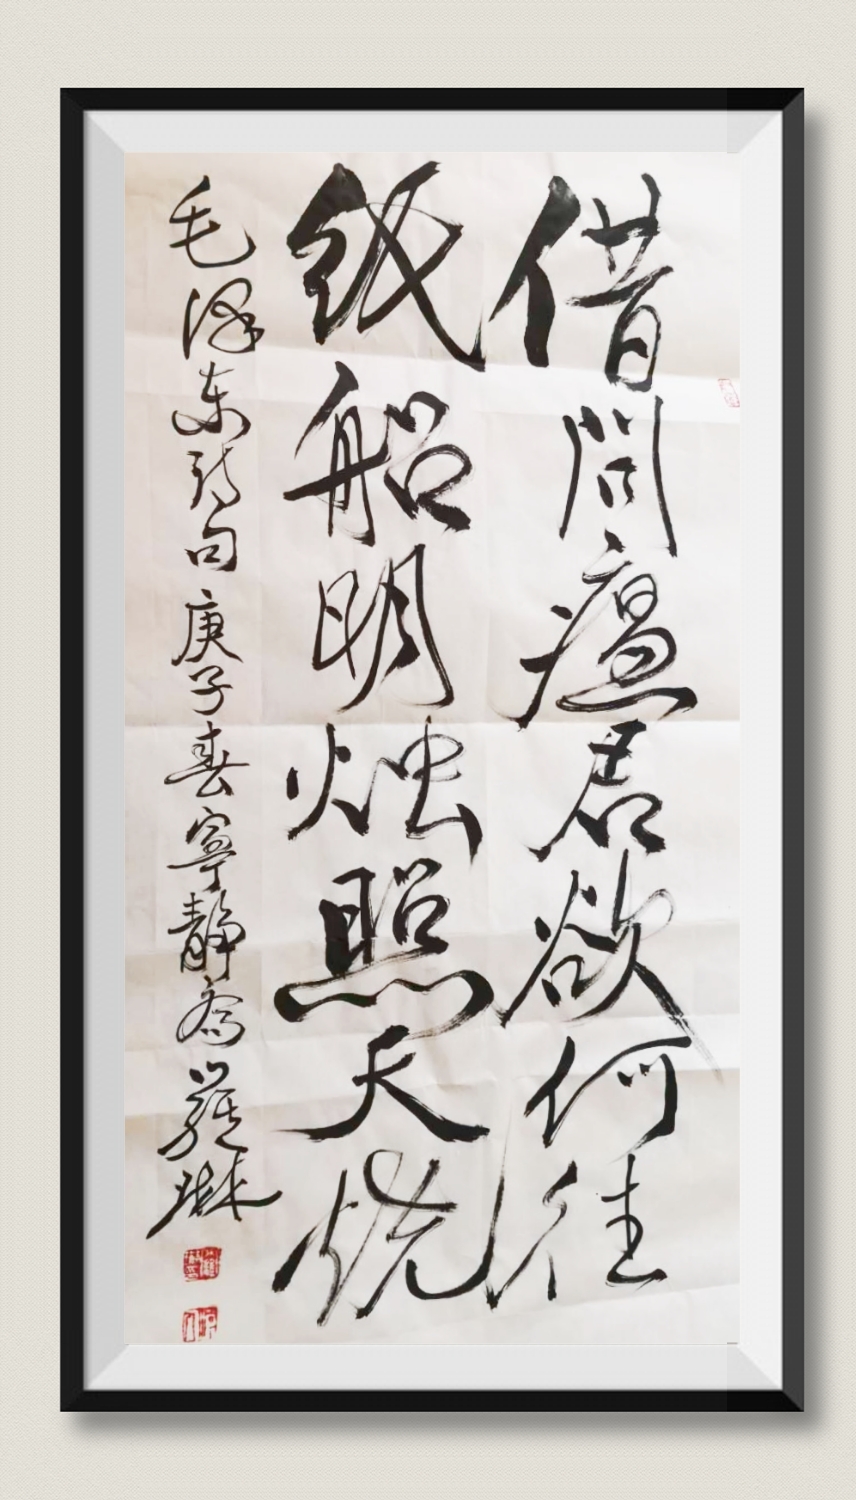 借問瘟君欲何往
纸船明烛照天烧
毛泽东诗句庚子春寧静斋